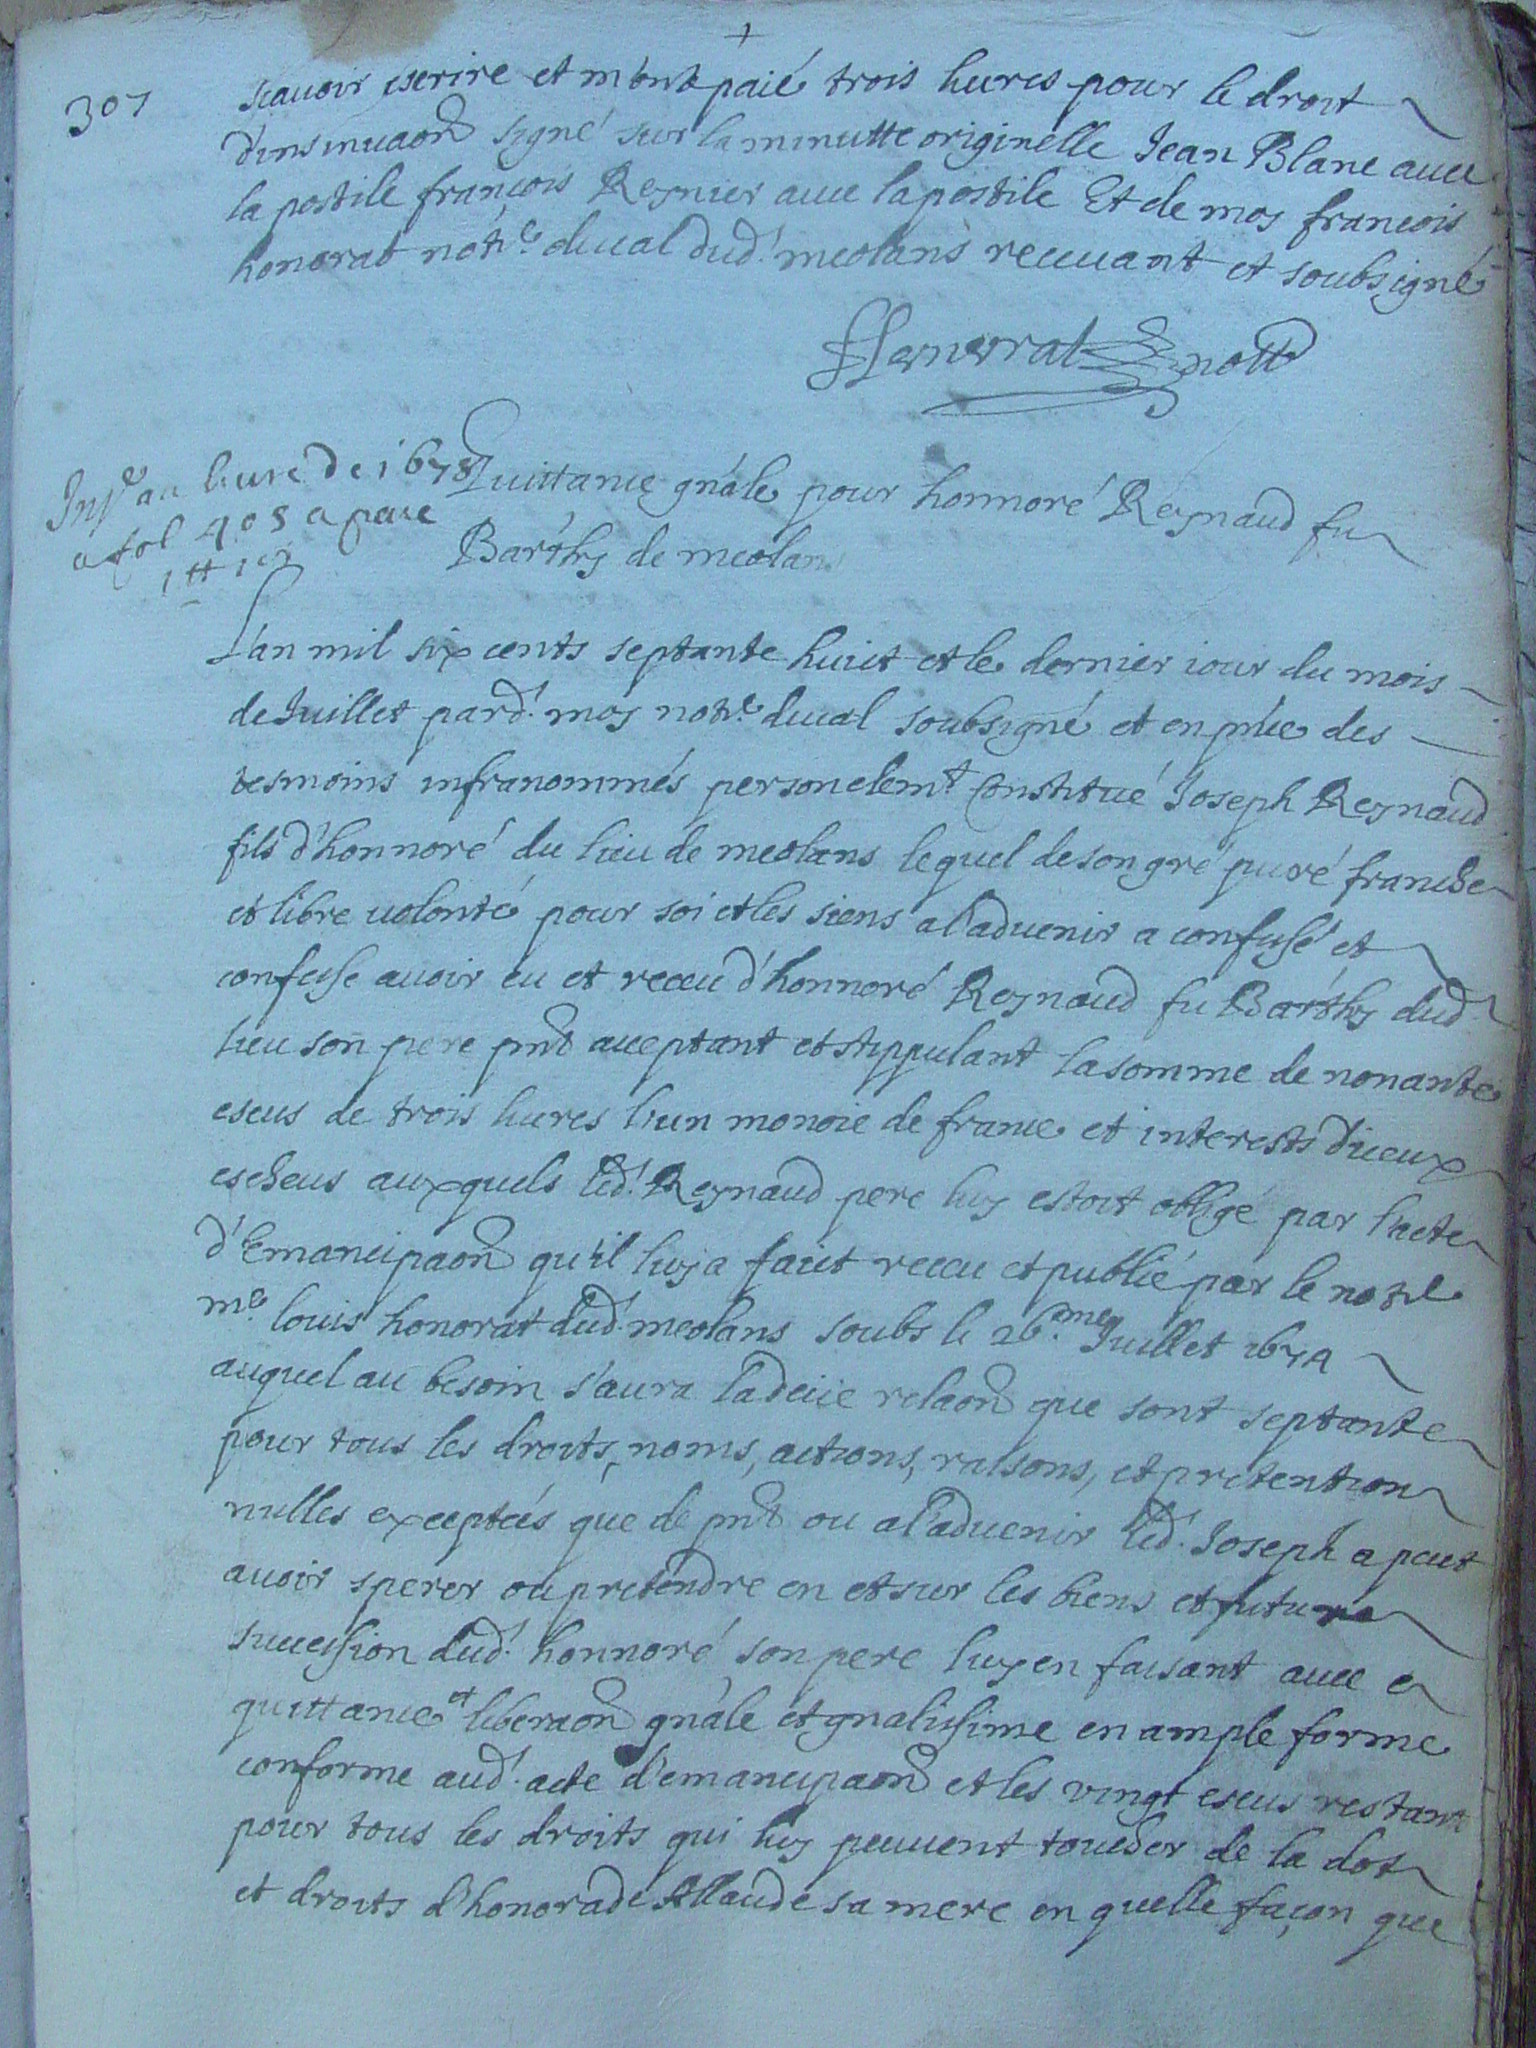 307
scauoir escrire et m'ont paié trois liures pour le droit
d'insinuaon signé sur la minutte originelle Jean Blanc auec
la postile françois Reynier auec la postile Et de moy francois
honorat not.re ducal dud.t meolans receuant et soubsigné
FHonorat nott.
Ins.é au liure de 1678
a fol 405 a paié
1 tt
Quittance gñale pour honnoré Reynaud fu
Barthy de meolans
L'an mil six cents septante huict et le dernier iour du mois
de Juillet pard.t moy not.re ducal soubsigné et en pñce des
tesmoins infranommés personelem.t Constitué Joseph Reynaud
fils d'honnoré du lieu de meolans lequel de son gré puré franche
et libre uolonté pour soi et les siens a l'aduenir a confessé et
confesse auoir eu et receu d'honnoré Reynaud fu Barthy dud.
lieu son pere pnt acceptant et stippulant la somme de nonante
escus de trois liures l'un monoie de france et interests d'iceux
escheus auxquels led.t Reynaud pere luy estoit obligé par l'acte
d'Emancipaon qu'il luy a faict receu et publié par le not.re
m.e louis honorat dud.t meolans soubs le 26.me Juillet 1674
auquel au besoin s'aura ladeüe relaon que sont septante
pour tous les droits, noms, actions, raisons, et pretention
nulles exceptés que de pnt ou a l'aduenir led.t Joseph a peut
auoir sperer ou pretendre en et sur les biens et future
succession dud.t honnoré son pere luy en faisant auec e
quittance et liberaon gñale et gnalissime en ample forme
conforme aud.t acte d'emancipaon et les vingt escus restant
pour tous les droits qui luy peuuent toucher de la dot
et droits d'honorade Allaude sa mere en quelle façon que